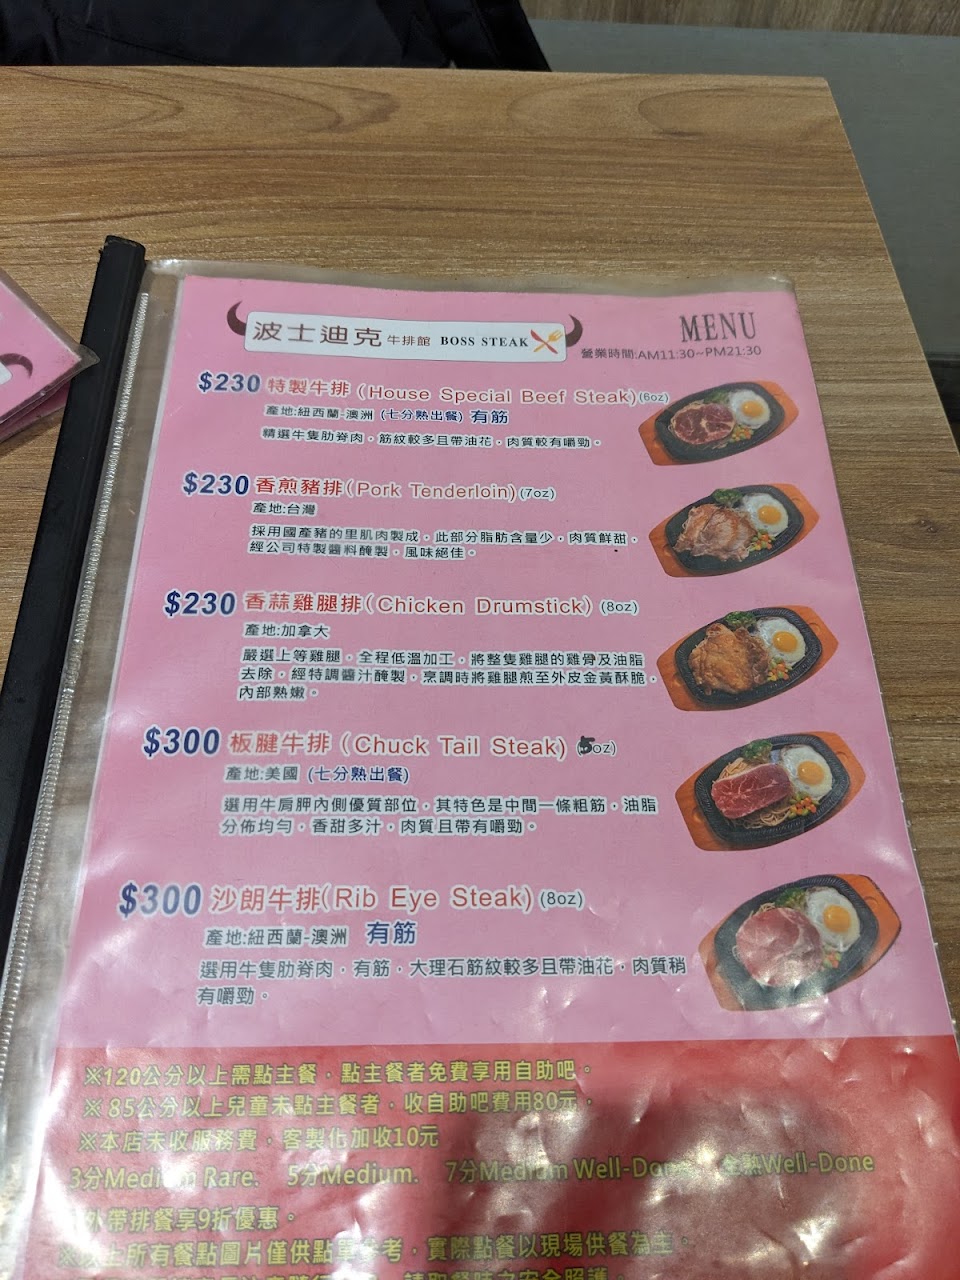 波士迪克 牛排館 BOSS STEAK
MENU
營業時間:AM11:30~PM21:30
$230 特製牛排 (House Special Beef Steak)(6oz)
產地:紐西蘭-澳洲 (七分熟出餐) 有筋
精選牛隻肋脊肉，筋紋較多且帶油花，肉質較有嚼勁。
$230 香煎豬排(Pork Tenderloin)(7oz)
產地:台灣
採用國產豬的里肌肉製成，此部分脂肪含量少，肉質鮮甜，
經公司特製醬料醃製，風味絕佳。
$230 香蒜雞腿排(Chicken Drumstick) (8oz)
產地:加拿大
嚴選上等雞腿，全程低溫加工，將整隻雞腿的雞骨及油脂
去除，經特調醬汁醃製，烹調時將雞腿煎至外皮金黃酥脆，
內部熟嫩。
$300 板腱牛排 (Chuck Tail Steak) oz)
產地:美國 (七分熟出餐)
選用牛肩胛內側優質部位，其特色是中間一條粗筋，油脂
分佈均勻，香甜多汁，肉質且帶有嚼勁。
$300 沙朗牛排(Rib Eye Steak) (8oz)
產地:紐西蘭-澳洲 有筋
選用牛隻肋脊肉，有筋，大理石筋紋較多且帶油花，肉質稍
有嚼勁。
※120公分以上需點主餐，點主餐者免費享用自助吧。
※ 85公分以上兒童未點主餐者，收自助吧費用80元，
※本店未收服務費，客製化加收10元
3分Medium Rare. 5分Medium. 7分Medium Well-Done 全熟Well-Done
外帶排餐享9折優惠。
※以上所有餐點圖片僅供點單參考，實際點餐以現場供餐為主。